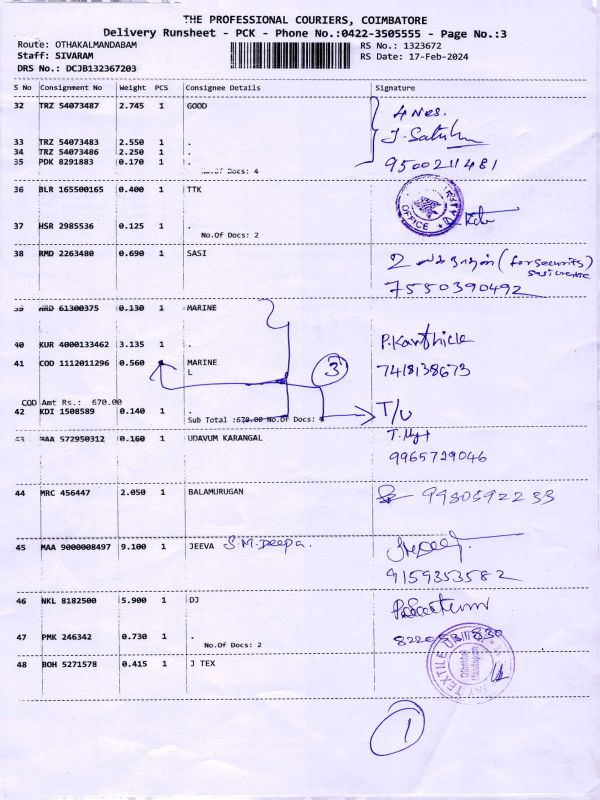 THE PROFESSIONAL COURIERS, COIMBATORE
Delivery Runsheet - PCK - Phone No.:0422-3505555 - Page No.:3
Route: OTHAKALMANDABAM RS No.: 1323672
Staff: SIVARAM RS Date: 17-Feb-2024
DRS No.: DCJB132367203
S No Consignment No Weight PCS Consignee Details Signature
32 TRZ 54073487 2.745 1 GOOD 4 Nos.
33 TRZ 54073483 2.550 1 .
34 TRZ 54073486 2.250 1 .
35 PDK 8291883 0.170 1 . 9500211481
No.Of Docs: 4
36 BLR 165500165 0.400 1 TTK
OFFICE
37 HSR 2985536 0.125 1 .
No.Of Docs: 2
38 RMD 2263480 0.690 1 SASI (for security)
7550390492
39 HRD 61300375 0.130 1 MARINE
40 KUR 4000133462 3.135 1 . P.Karthick
41 COD 1112011296 0.560 1 MARINE 3 7418138673
L
COD Amt Rs.: 670.00
42 KDI 1508589 0.140 1 . T/U
Sub Total :670.00 No.Of Docs:
43 MAA 572950312 0.160 1 UDAVUM KARANGAL
9965729046
44 MRC 456447 2.050 1 BALAMURUGAN
45 MAA 9000008497 9.100 1 JEEVA S.M.Deepa.
9159353582
46 NKL 8182500 5.900 1 DJ
47 PMK 246342 0.730 1 .
No.Of Docs: 2
48 BOH 5271578 0.415 1 J TEX
TEXTILE
1